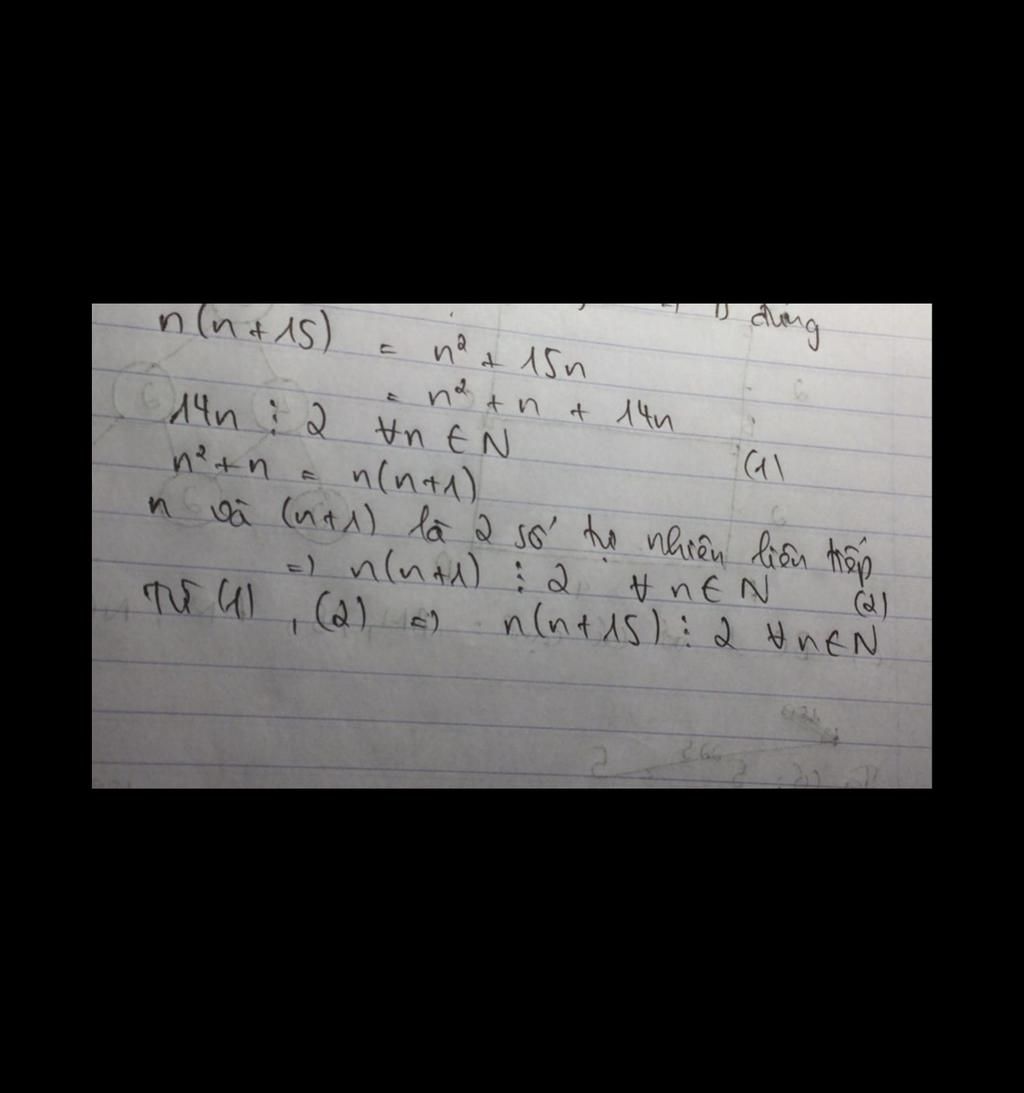 dung
n(n+15) = n² + 15n
= n² + n + 14n
14n ⋮ 2 ∀n ∈ N (1)
n² + n = n(n+1)
n và (n+1) là 2 số tự nhiên liên tiếp
=) n(n+1) ⋮ 2 ∀ n ∈ N (2)
Từ (1) , (2) =) n(n+15) ⋮ 2 ∀n∈N